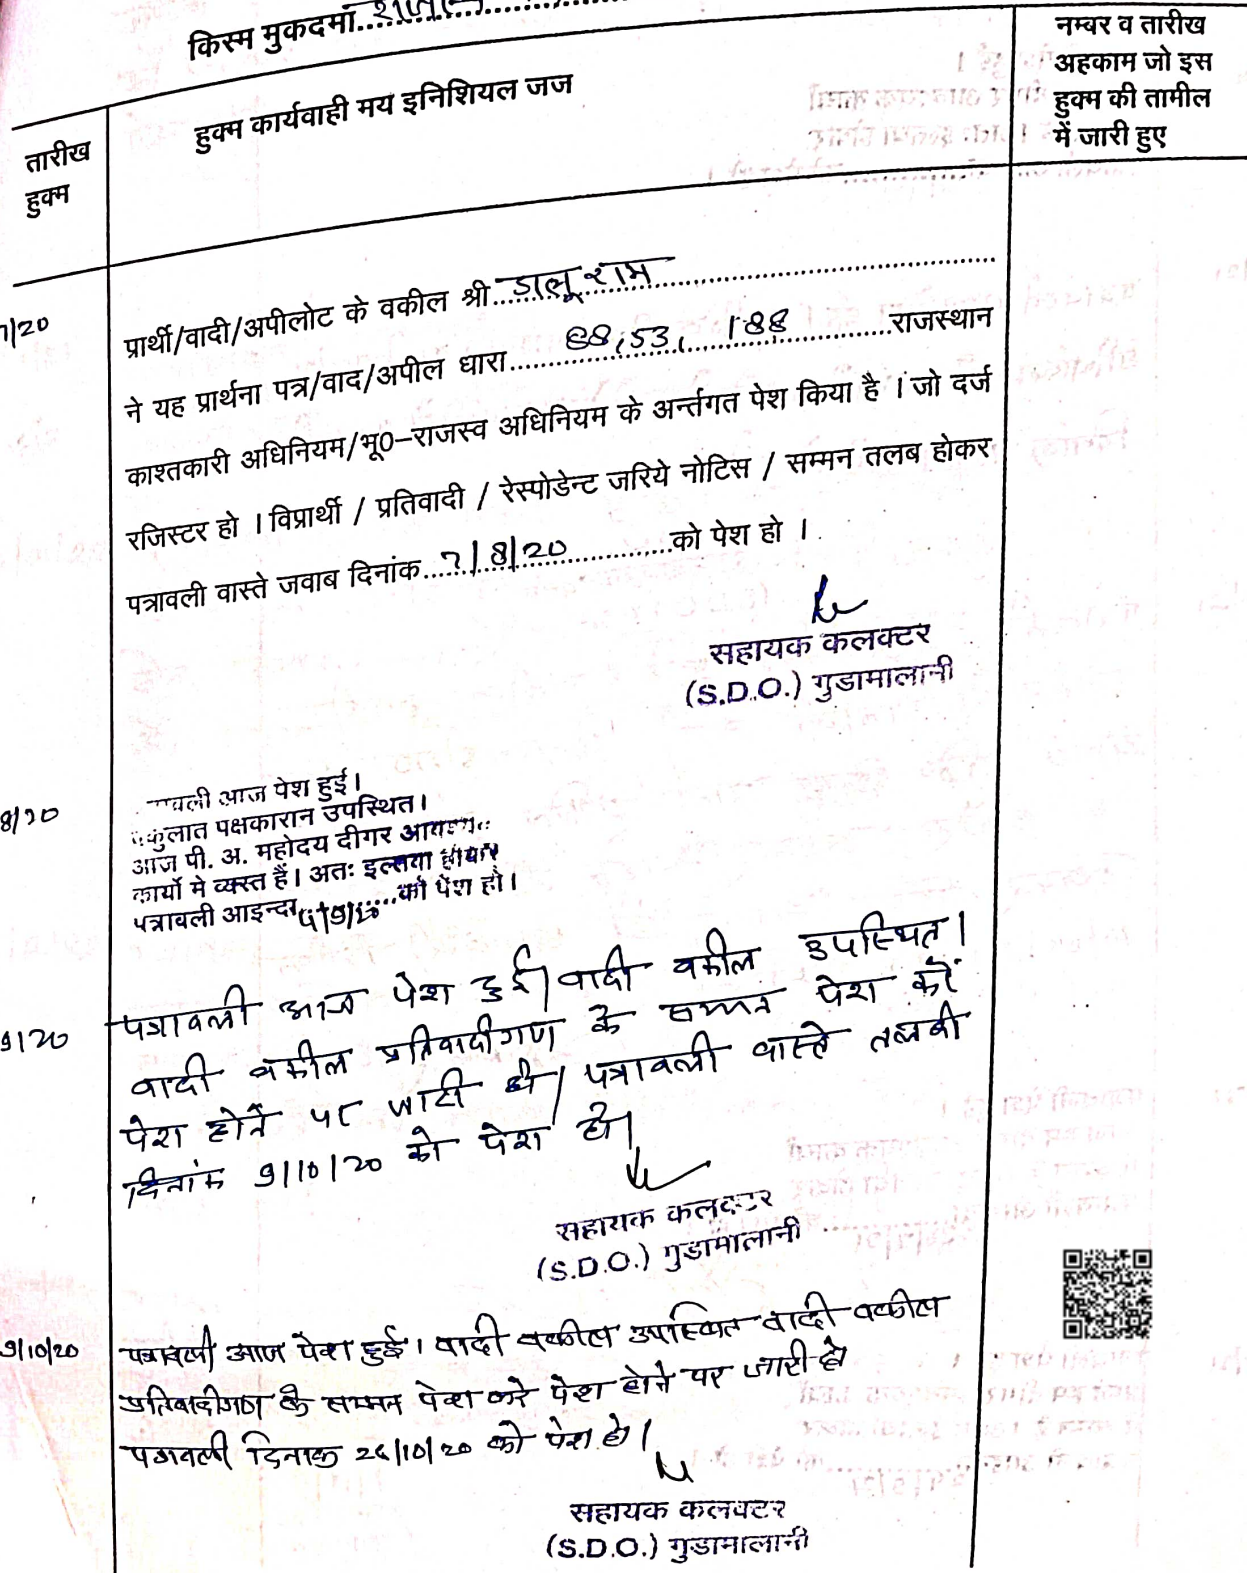 किस्म मुकदमा
हुक्म कार्यवाही मय इनिशियल जज
नम्बर व तारीख
अहकाम जो इस
हुक्म की तामील
में जारी हुए
तारीख
हुक्म
7/20
प्रार्थी/वादी/अपीलोट के वकील श्री डालूराम
ने यह प्रार्थना पत्र/वाद/अपील धारा 88,53, 188 राजस्थान
काश्तकारी अधिनियम/भू0-राजस्व अधिनियम के अर्न्तगत पेश किया है । जो दर्ज
रजिस्टर हो । विप्रार्थी / प्रतिवादी / रेस्पोडेन्ट जरिये नोटिस / सम्मन तलब होकर
पत्रावली वास्ते जवाब दिनांक 7/8/20 को पेश हो ।
सहायक कलक्टर
(S.D.O.) गुडामालानी
8/20
आज पेश हुई।
पक्षकारान उपस्थित।
आज पी. अ. महोदय दीगर
कार्यो मे व्यस्त हैं। अतः इल्तवा होकर
पत्रावली आइन्दा को पेश हो।
9/20
पत्रावली आज पेश हुई। वादी वकील उपस्थित।
वादी वकील प्रतिवादीगण के सम्मन पेश करें
पेश होने पर जारी हो। पत्रावली वास्ते तलबी
दिनांक 9/10/20 को पेश हो।
सहायक कलक्टर
(S.D.O.) गुडामालानी
9/10/20
पत्रावली आज पेश हुई। वादी वकील उपस्थित वादी वकील
प्रतिवादीगण के सम्मन पेश करे पेश होने पर जारी हो
पत्रावली दिनांक 26/10/20 को पेश हो।
सहायक कलक्टर
(S.D.O.) गुडामालानी